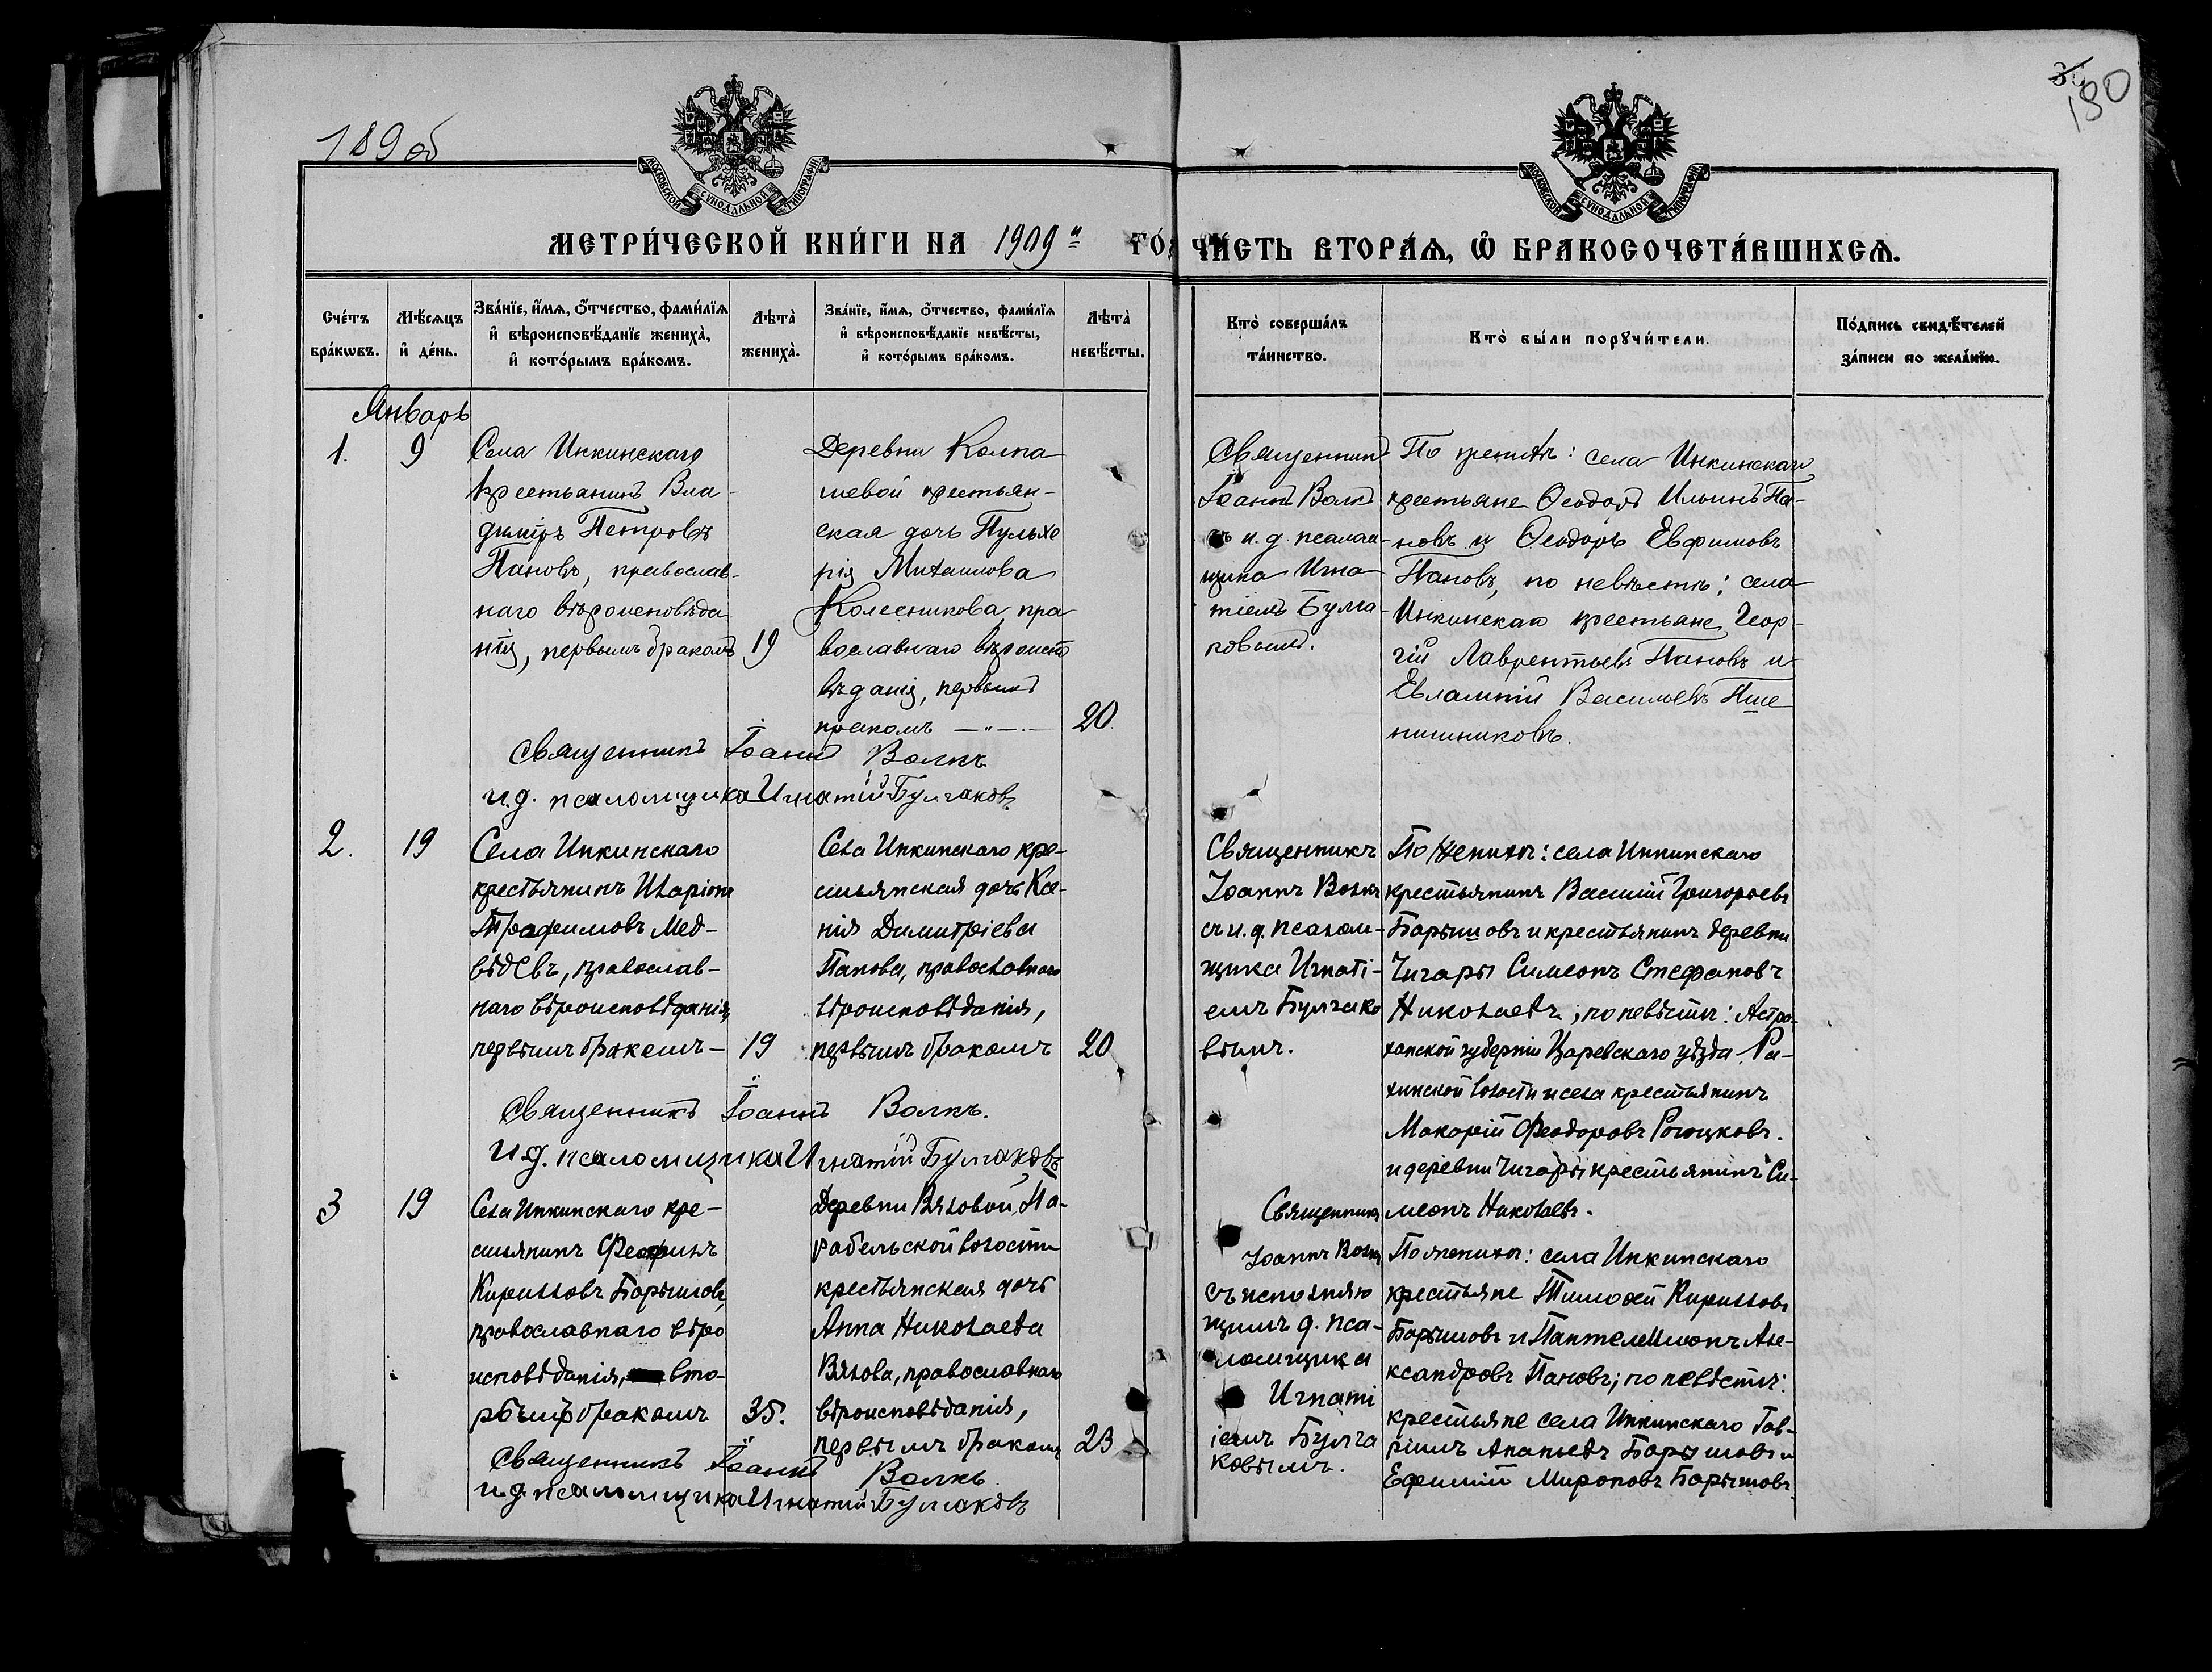 189 об
180
МОСКОВСКОЙ СѴНОДАЛЬНОЙ ТИПОГРАФІИ
МОСКОВСКОЙ СѴНОДАЛЬНОЙ ТИПОГРАФІИ
МЕТРИ́ЧЕСКОЙ КНИ́ГИ НА 1909 й ГО́Д ЧА́СТЬ ВТОРА́Ѧ, Ѡ҆ БРАКОСОЧЕТА́ВШИХСѦ.
Сче́тъ
бра́кωвъ.
Мѣ́сѧцъ
и҆ де́нь.
Зва́нїе, и҆́мѧ, ѻ҆́тчество, фами́лїѧ
и҆ вѣроисповѣ́данїе жениха̀,
и҆ кото́рымъ бра́комъ.
Лѣта̀
жениха̀.
Зва́нїе, и҆́мѧ, ѻ҆́тчество, фами́лїѧ
и҆ вѣроисповѣ́данїе невѣ́сты,
и҆ кото́рымъ бра́комъ.
Лѣта̀
невѣ́сты.
Кто̀ соверша́лъ
та́инство.
Кто̀ бы́ли порꙋчи́тели.
По́дпись свидѣ́телей
за́писи по жела́нїю.
Январь
1.
9
Села Инкинскаго
крестьянинъ Вла-
диміръ Петровъ
Пановъ, православ-
наго вѣроисповѣда
нія, первымъ бракомъ
19
Деревни Колпа
шевой крестьян-
ская дочь Пульхе
рія Михаилова
Колесникова, пра
вославнаго вѣроиспо
вѣданія, первымъ
бракомъ — " —
20.
Священникъ
Іоаннъ Волкъ
съ и. д. псалом-
щика Игна
тіемъ Булга-
ковымъ.
По женихѣ: села Инкинскаго
крестьяне Ѳеодоръ Ильинъ Па-
новъ и Ѳеодоръ Евфимовъ
Пановъ, по невѣстѣ: села
Инкинскаго крестьяне Геор-
гій Лаврентьевъ Пановъ и
Евлампій Васильевъ Пше
нишниковъ.
Священникъ Іоаннъ Волкъ
и. д. псаломщика Игнатій Булгаковъ
2.
19
Села Инкинскаго
крестьянинъ Иларіонъ
Трофимовъ Мед-
вѣдевъ, православ-
наго вѣроисповѣданія,
первымъ бракомъ —
19
Села Инкинскаго кре-
стьянская дочь Ксе-
нія Димитріева
Панова, православнаго
вѣроисповѣданія,
первымъ бракомъ
20
Священникъ
Іоаннъ Волкъ
съ и. д. псалом-
щика Игнаті-
емъ Булгако
вымъ.
По женихѣ: села Инкинскаго
крестьянинъ Василій Григорьевъ
Барышовъ и крестьянинъ деревни
Чигары Симеонъ Стефановъ
Николаевъ; по невѣстѣ: Астра-
ханской губерніи Царевскаго уѣзда Ра-
хинской волости и села крестьянинъ
Макарій Феодоровъ Рогоцковъ.
и деревни Чигары крестьянинъ Си-
меонъ Николаевъ.
Священникъ Іоаннъ Волкъ.
и. д. псаломщика Игнатій Булгаковъ
3
19
Села Инкинскаго кре-
стьянинъ
Кирилловъ Барышовъ,
православнаго вѣро
исповѣданія, вто-
рымъ бракомъ
35.
Деревни Вяловой, Па-
рабельской волости
крестьянская дочь
Анна Николаева
Вялова, православнаго
вѣроисповѣданія,
первымъ бракомъ
23
Священникъ
Іоаннъ Волкъ
съ исполняю
щимъ д. пса-
ломщика
Игнаті
іемъ Булга
ковымъ.
По женихѣ: села Инкинскаго
крестьяне Тимофей Кирилловъ
Барышовъ и Пантелеимонъ Але-
ксандровъ Пановъ; по невѣстѣ:
крестьяне села Инкинскаго Гав-
ріилъ Ананьевъ Барышовъ и
Ефимій Мироновъ Барышовъ.
Священникъ Іоаннъ Волкъ
и. д. псаломщика Игнатій Булгаковъ